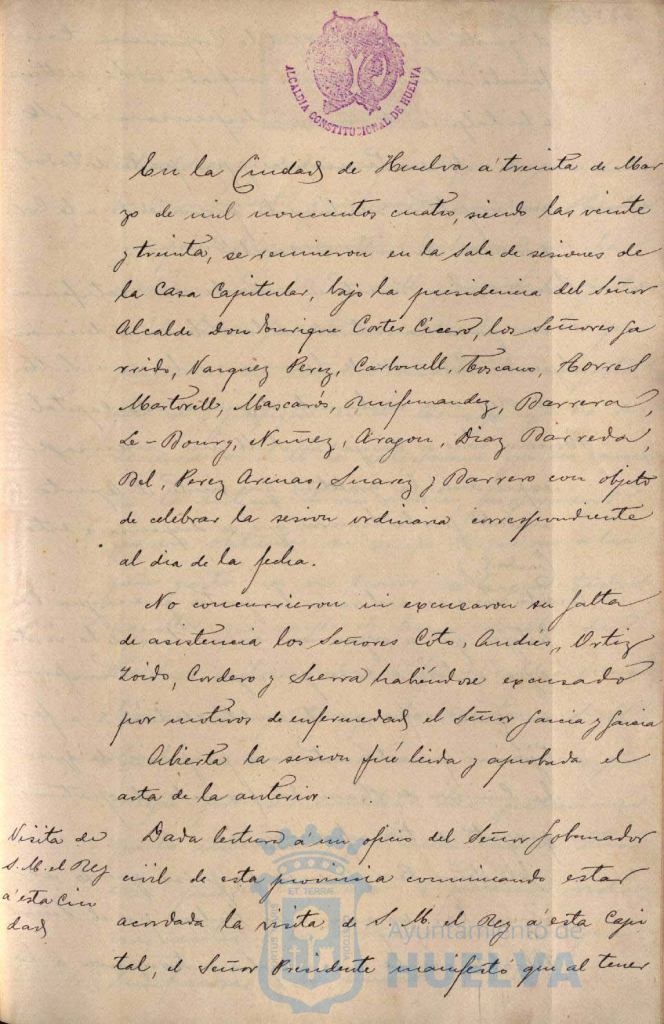 ALCALDIA CONSTITUCIONAL DE HUELVA
En la Ciudad de Huelva á treinta de Mar
zo de mil novecientos cuatro, siendo las veinte
y treinta, se reunieron en la Sala de sesiones de
la Casa Capitular, bajo la presidencia del Señor
Alcalde Don Enrique Cortes Cicero, los Señores Ga
rrido, Vazquez Perez, Carbonell, Toscano, Torres
Martorell, Mascarós, Ruifernandez, Barrera,
Le-Bourg, Nuñez, Aragon, Diaz Barreda,
Bel, Perez Arenas, Suarez y Barrero con objeto
de celebrar la sesion ordinaria correspondiente
al dia de la fecha.
No concurrieron ni excusaron su falta
de asistencia los Señores Coto, Andrés, Ortiz
Zoido, Cordero y Sierra habiéndose excusado
por motivos de enfermedad el Señor Garcia y Garcia
Abierta la sesion fué leida y aprobada el
acta de la anterior.
Visita de
S. M. el Rey
á esta Ciu
dad
Dada lectura á un oficio del Señor Gobernador
civil de esta provincia comunicando estar
acordada la visita de S. M. el Rey á esta Capi
tal, el Señor Presidente manifestó que al tener
ET TERRÆ
Ayuntamiento de
HUELVA